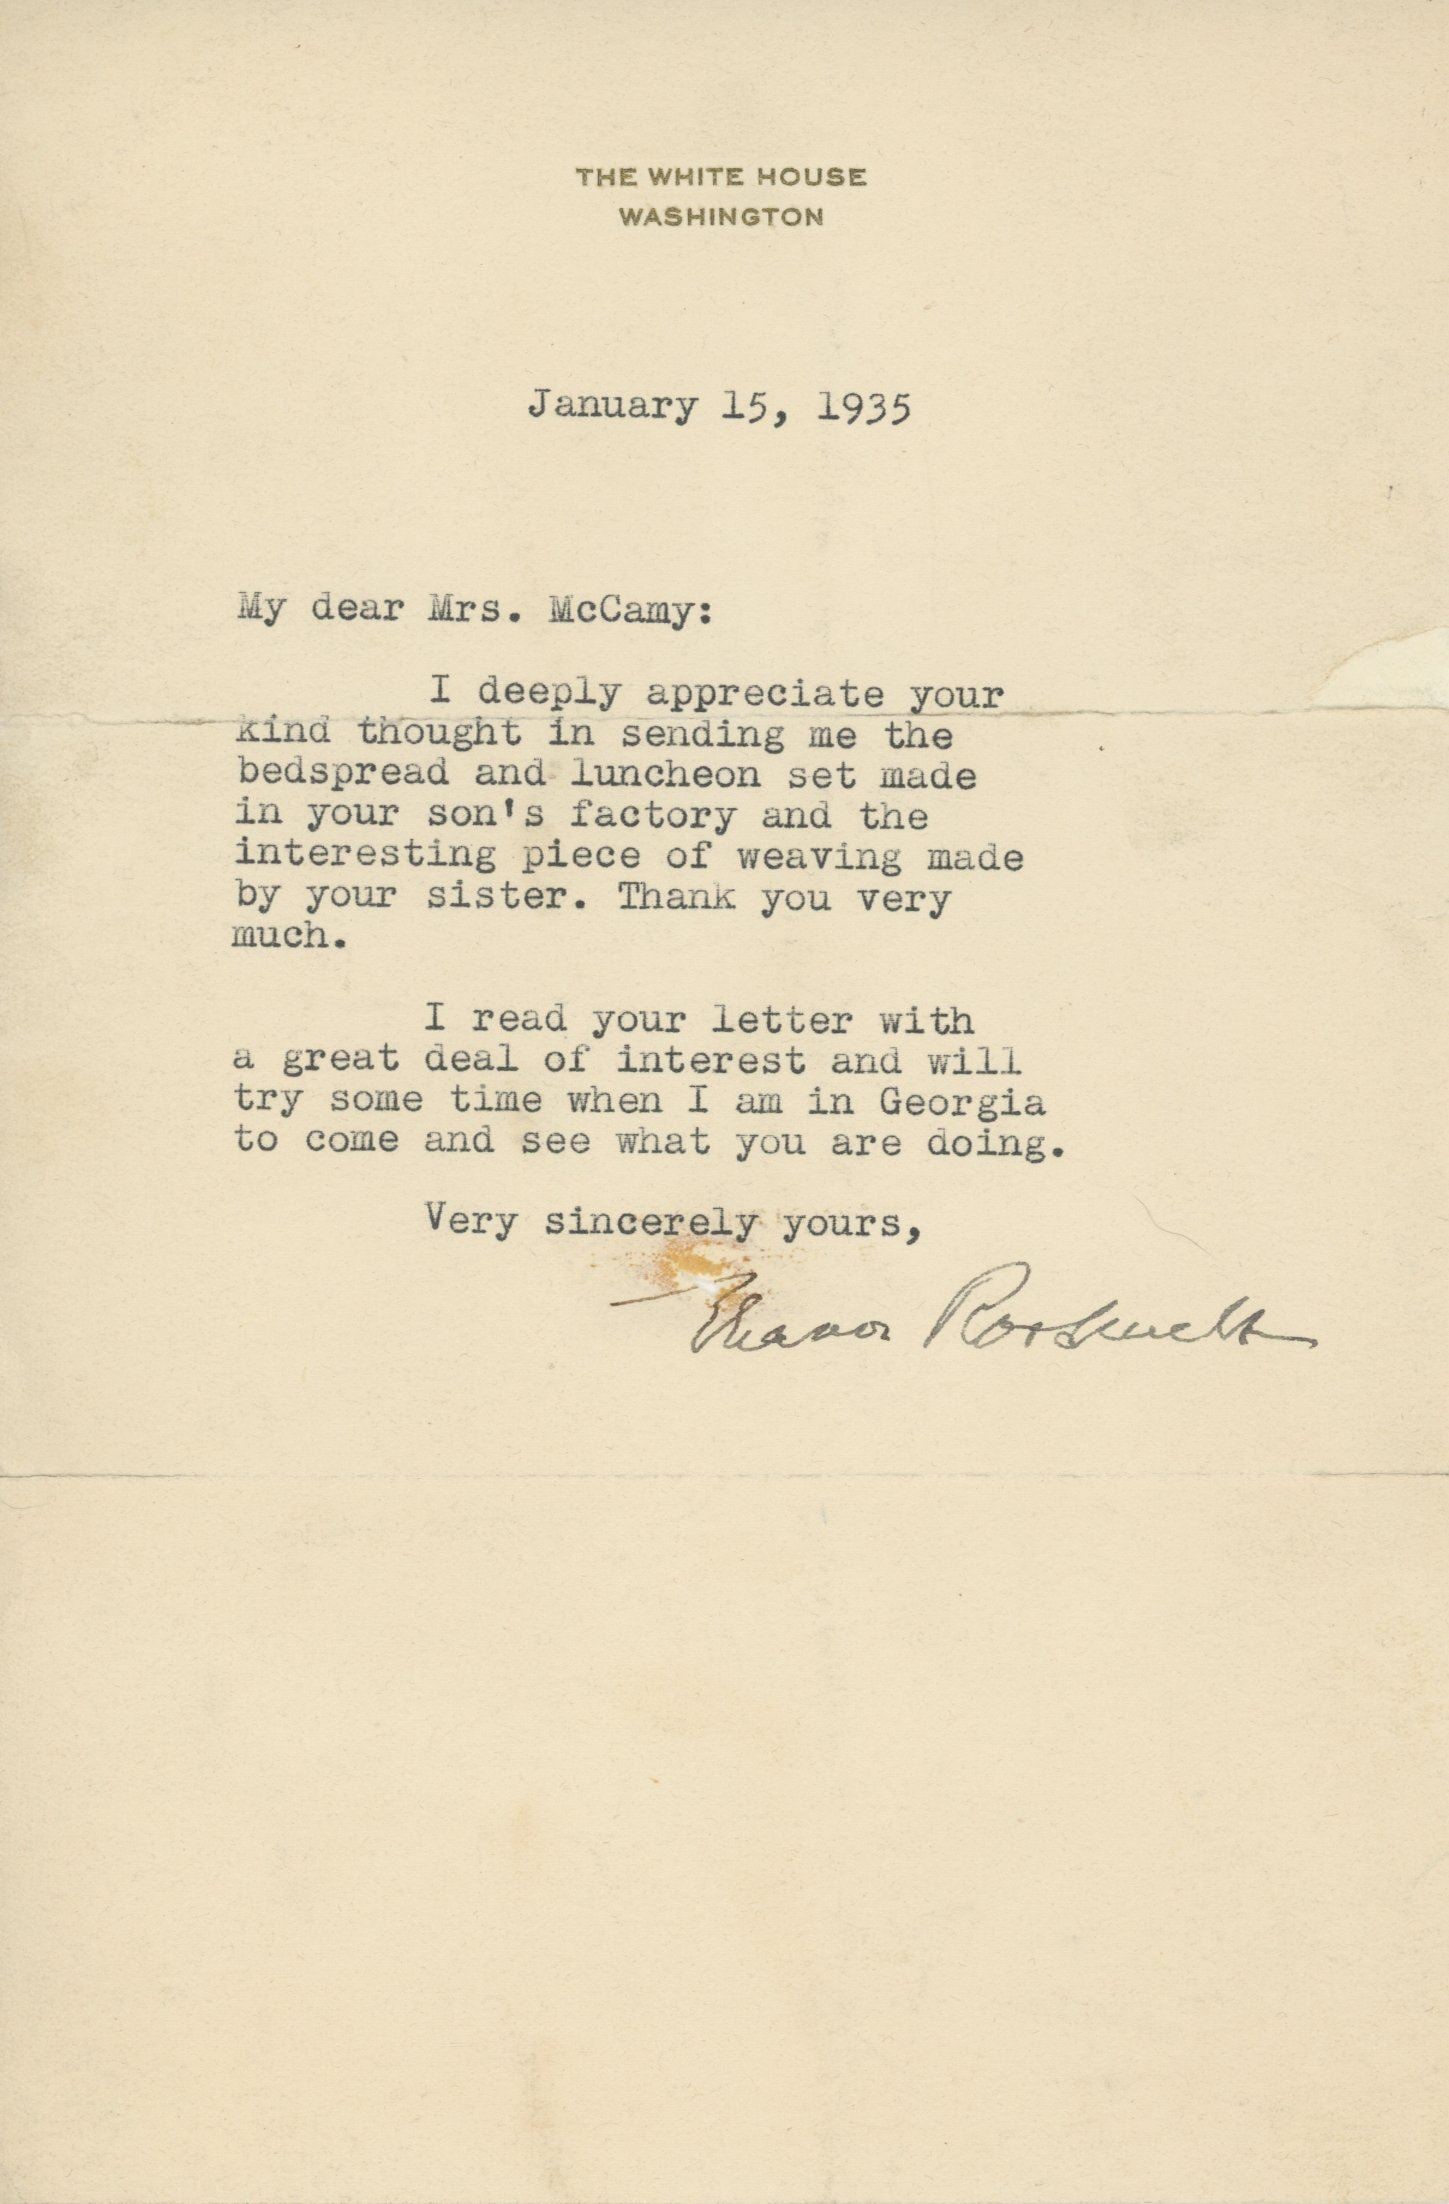 THE WHITE HOUSE
WASHINGTON
January 15, 1935
My dear Mrs. McCamy:
I deeply appreciate your
kind thought in sending me the
bedspread and luncheon set made
in your son's factory and the
interesting piece of weaving made
by your sister. Thank you very
much.
I read your letter with
a great deal of interest and will
try some time when I am in Georgia
to come and see what you are doing.
Very sincerely yours,
Eleanor Roosevelt